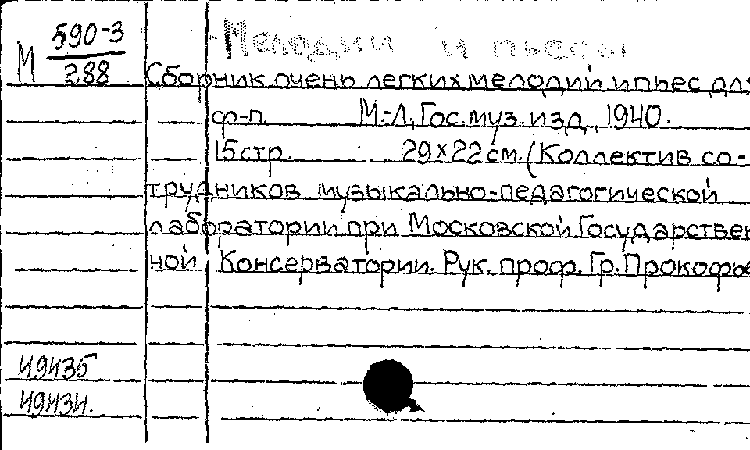 М 590-3
288
Мелодии и пьесы
Сборник очень легких мелодий и пьес для
ф-п. М.-Л, Гос. муз. изд., 1940.
15 стр. 29x22 см. (Коллектив со-
трудников музыкально-педагогической
лаборатории при Московской Государствен
ной Консерватории. Рук. проф. Гр. Прокофье
49435
49434.